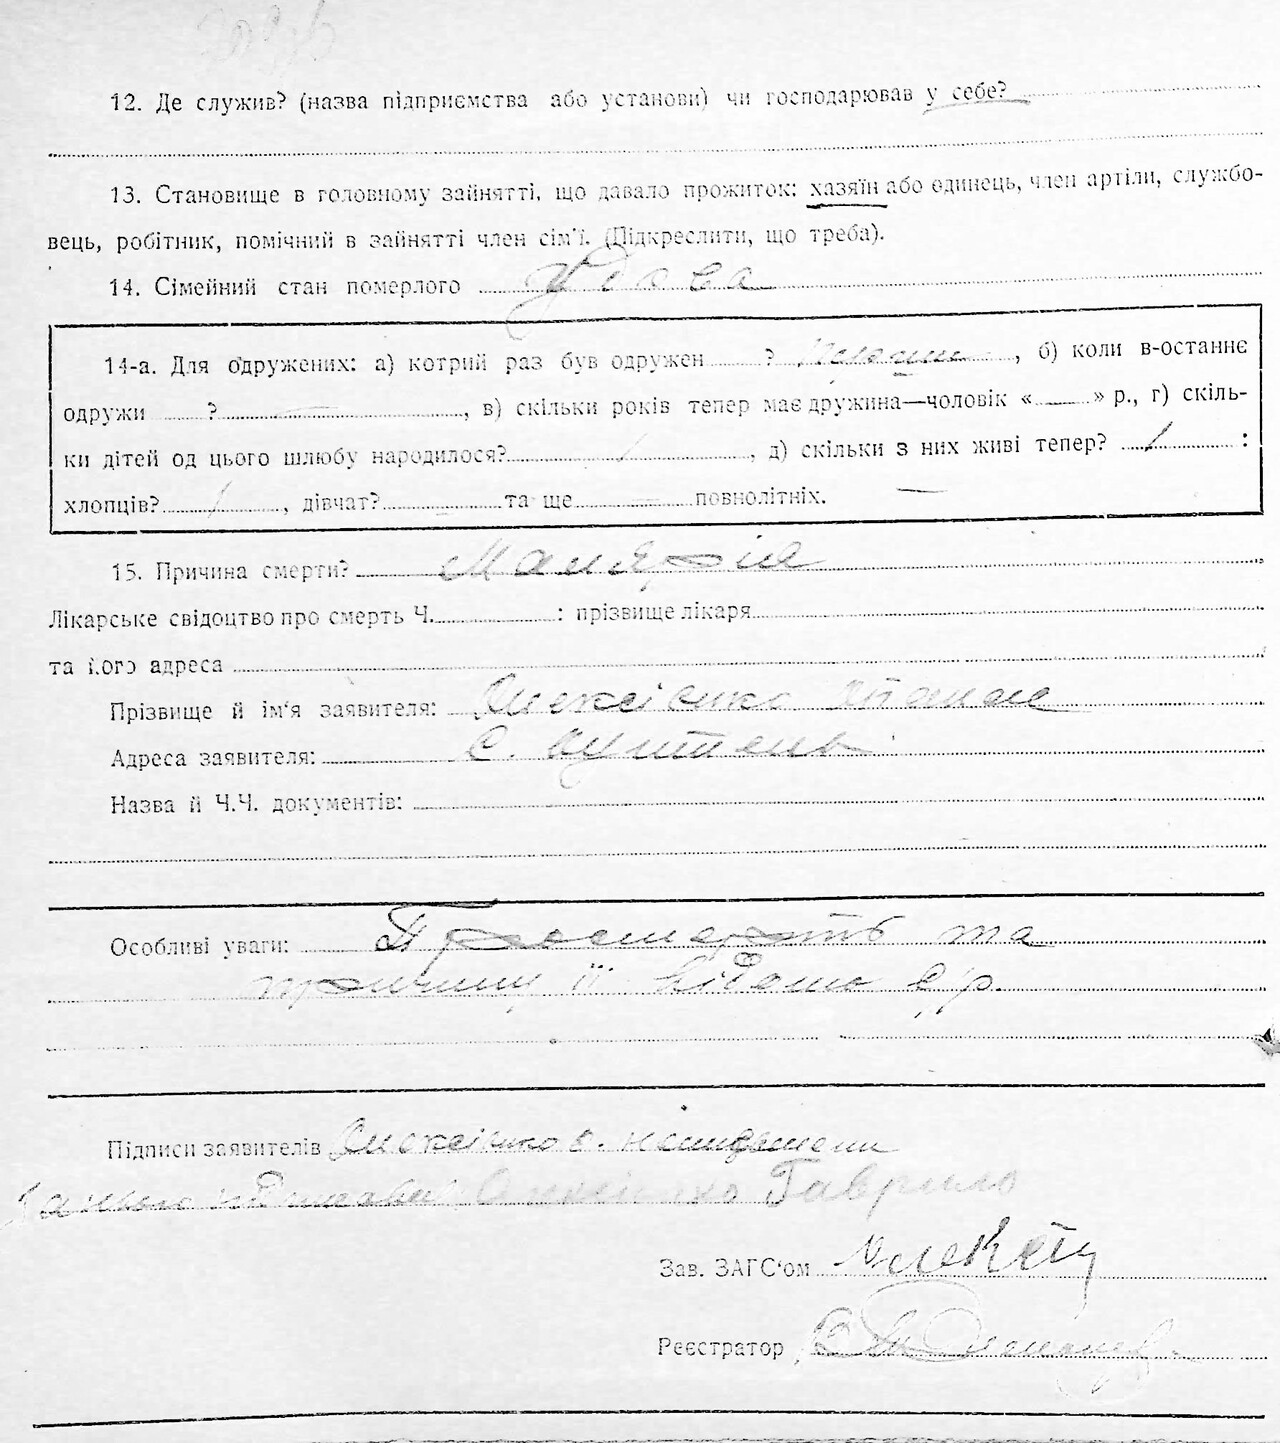 12. Де служив? (назва підприємства або установи) чи господарював у себе?
13. Становище в головному зайнятті, що давало прожиток: хазяїн або одинець, член артіли, службо-
вець, робітник, помічний в зайнятті член сім'ї. (Підкреслити, що треба).
14. Сімейний стан померлого удова
14-а. Для одружених: а) котрий раз був одружен ? , б) коли в-останнє
одружи ? — , в) скільки років тепер має дружина—чоловік « » р., г) скіль-
ки дітей од цього шлюбу народилося? 1 , д) скільки з них живі тепер? 1 :
хлопців? 1 , дівчат? — та ще — повнолітніх. —
15. Причина смерти? Малярія
Лікарське свідоцтво про смерть Ч. : прізвище лікаря
та його адреса
Прізвище й ім'я заявителя: Олексієнко
Адреса заявителя: с.
Назва й Ч.Ч. документів:
Особливі уваги: Про смерть та
причину її відомо с/р.
Підписи заявителів Олексієнко неписьмени
за нього підписався Олексієнко Гаврило
Зав. ЗАГС'ом
Реєстратор